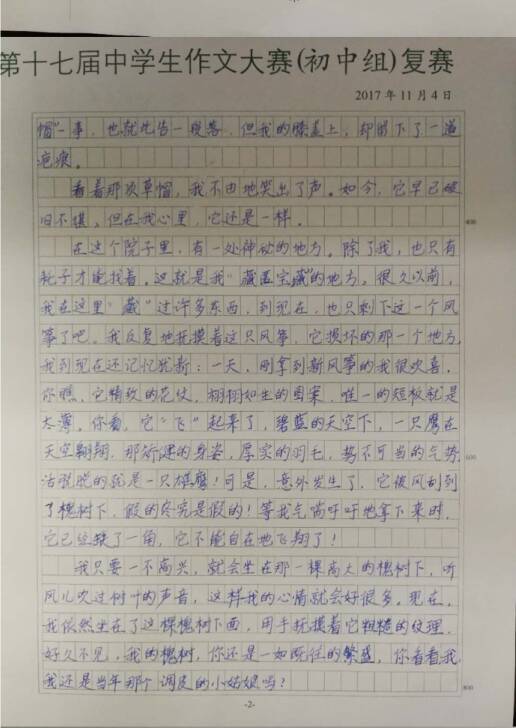 第十七届中学生作文大赛(初中组)复赛
2017年11月4日
帽"一事,也就此告一段落,但我的膝盖上,却留下了一道
疤痕。
看着那顶草帽,我不由地笑出了声。如今,它早已破
旧不堪,但在我心里,它还是一样。
400
在这个院子里,有一处神秘的地方。除了我,也只有
耗子才能找着。这就是我"藏匿宝藏"的地方。很久以前,
我在这里"藏"过许多东西,到现在,也只剩下这一个风
筝了吧。我反复地抚摸着这只风筝,它损坏的那一个地方,
我到现在还记忆犹新:一天,刚拿到新风筝的我很欢喜,
你瞧,它精致的花纹,栩栩如生的图案,唯一的短板就是
太薄。你看,它"飞"起来了,碧蓝的天空下,一只鹰在
天空翱翔,那矫健的身姿,厚实的羽毛,势不可当的气势,
600
活脱脱的就是一只雄鹰!可是,意外发生了,它被风刮到
了槐树下,假的终究是假的!等我气喘吁吁地拿下来时,
它已经缺了一角,它不能自在地飞翔了!
我只要一不高兴,就会坐在那一棵高大的槐树下,听
风儿吹过树叶的声音,这样我的心情就会好很多。现在,
我依然坐在了这棵槐树下面,用手抚摸着它粗糙的纹理,
好久不见,我的槐树,你还是一如既往的繁盛,你看看我,
我还是当年那个调皮的小姑娘吗?
800
-2-